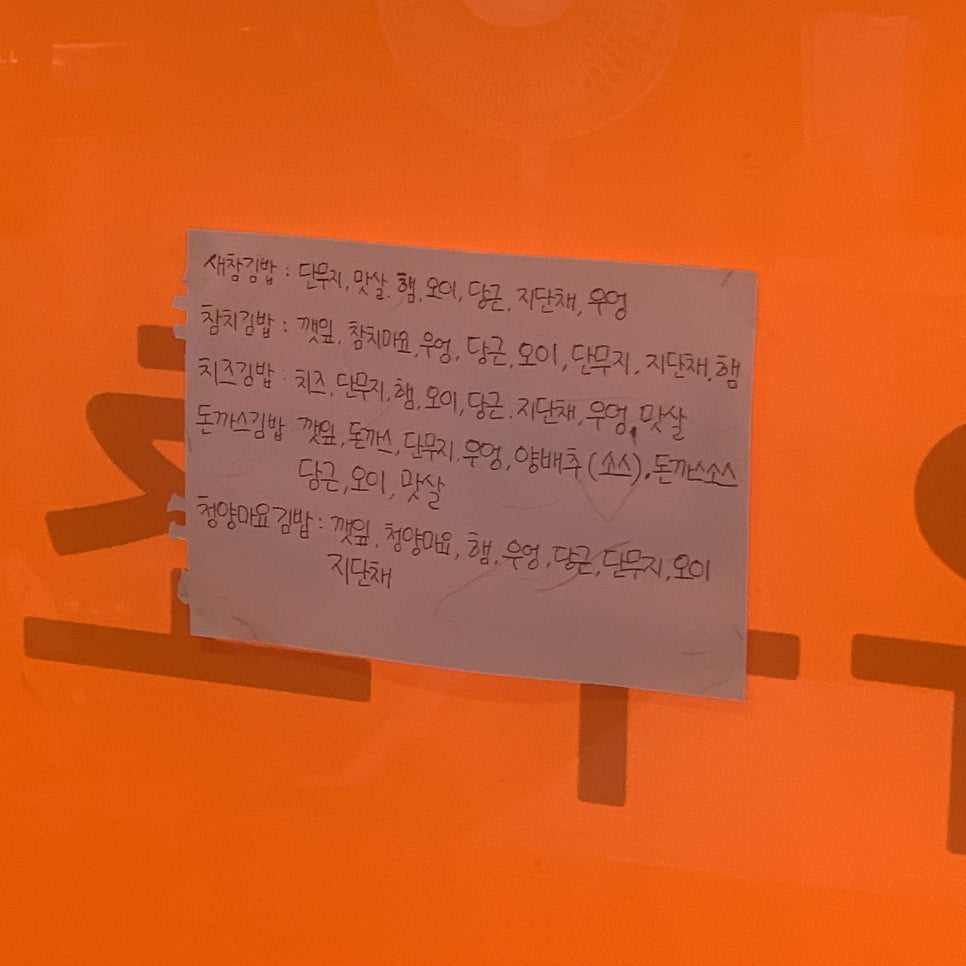 새참김밥 : 단무지, 맛살, 햄, 오이, 당근, 지단채, 우엉
참치김밥 : 깻잎, 참치마요, 우엉, 당근, 오이, 단무지, 지단채, 햄
치즈김밥 : 치즈, 단무지, 햄, 오이, 당근, 지단채, 우엉, 맛살
돈까스김밥 : 깻잎, 돈까스, 단무지, 우엉, 양배추(소스), 돈까스소스
당근, 오이, 맛살
청양마요김밥 : 깻잎, 청양마요, 햄, 우엉, 당근, 단무지, 오이
지단채